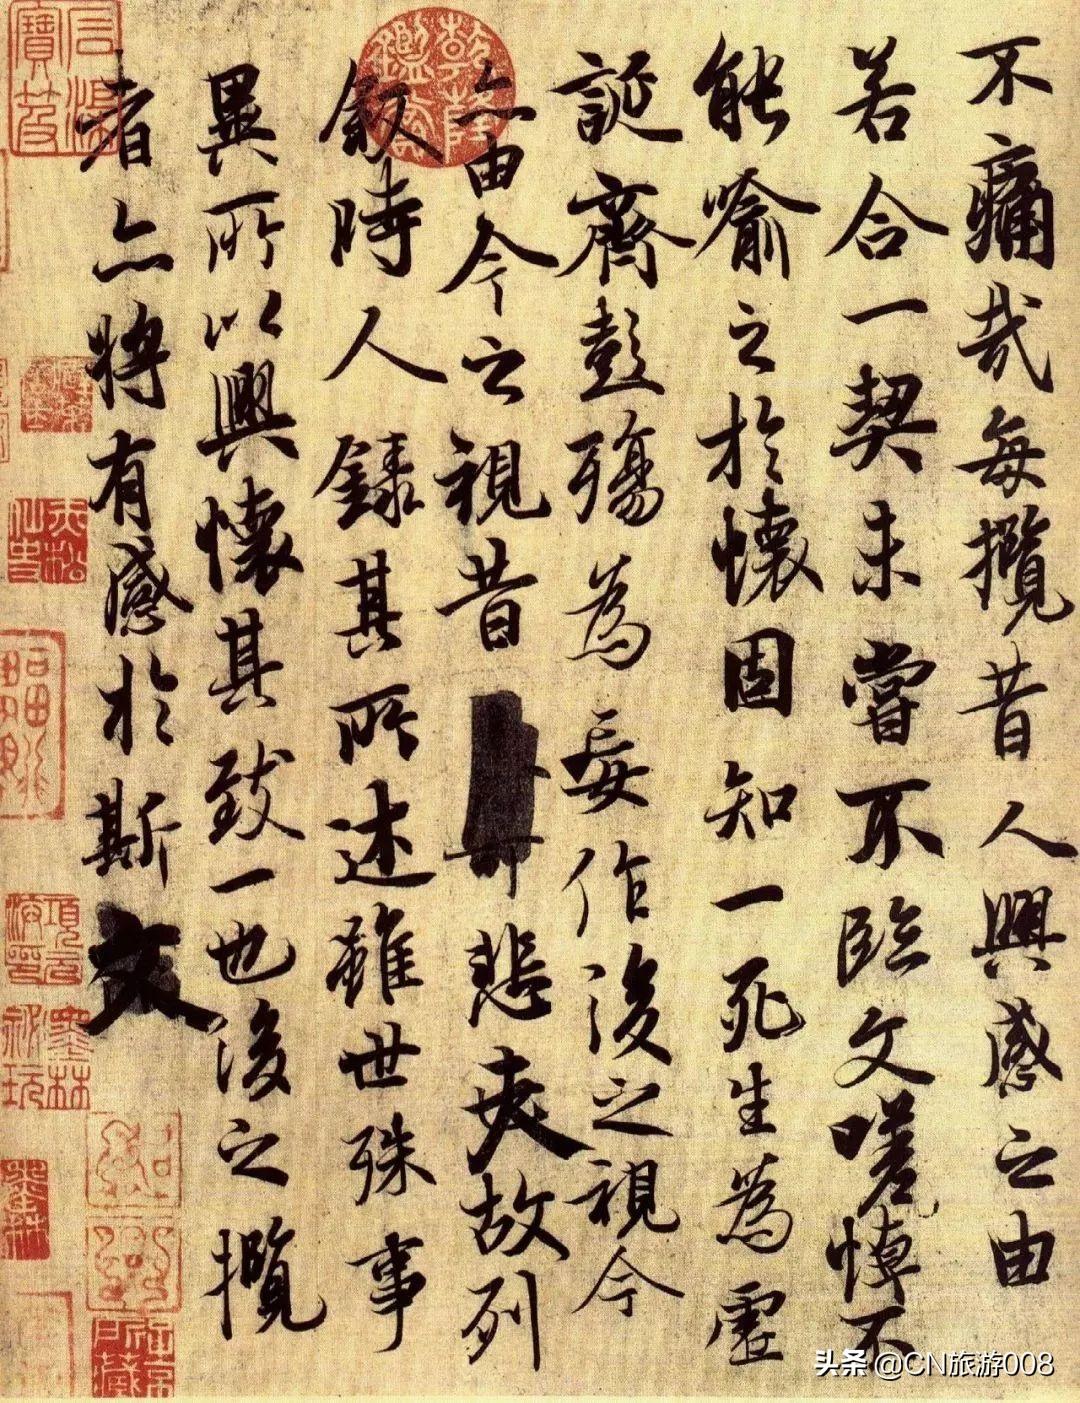 不痛哉每攬昔人興感之由
若合一契未嘗不臨文嗟悼不
能喻之於懷固知一死生為虛
誕齊彭殤為妄作後之視今
亦由今之視昔悲夫故列
敘時人錄其所述雖世殊事
異所以興懷其致一也後之攬
者亦將有感於斯文
頭条 @CN旅游008